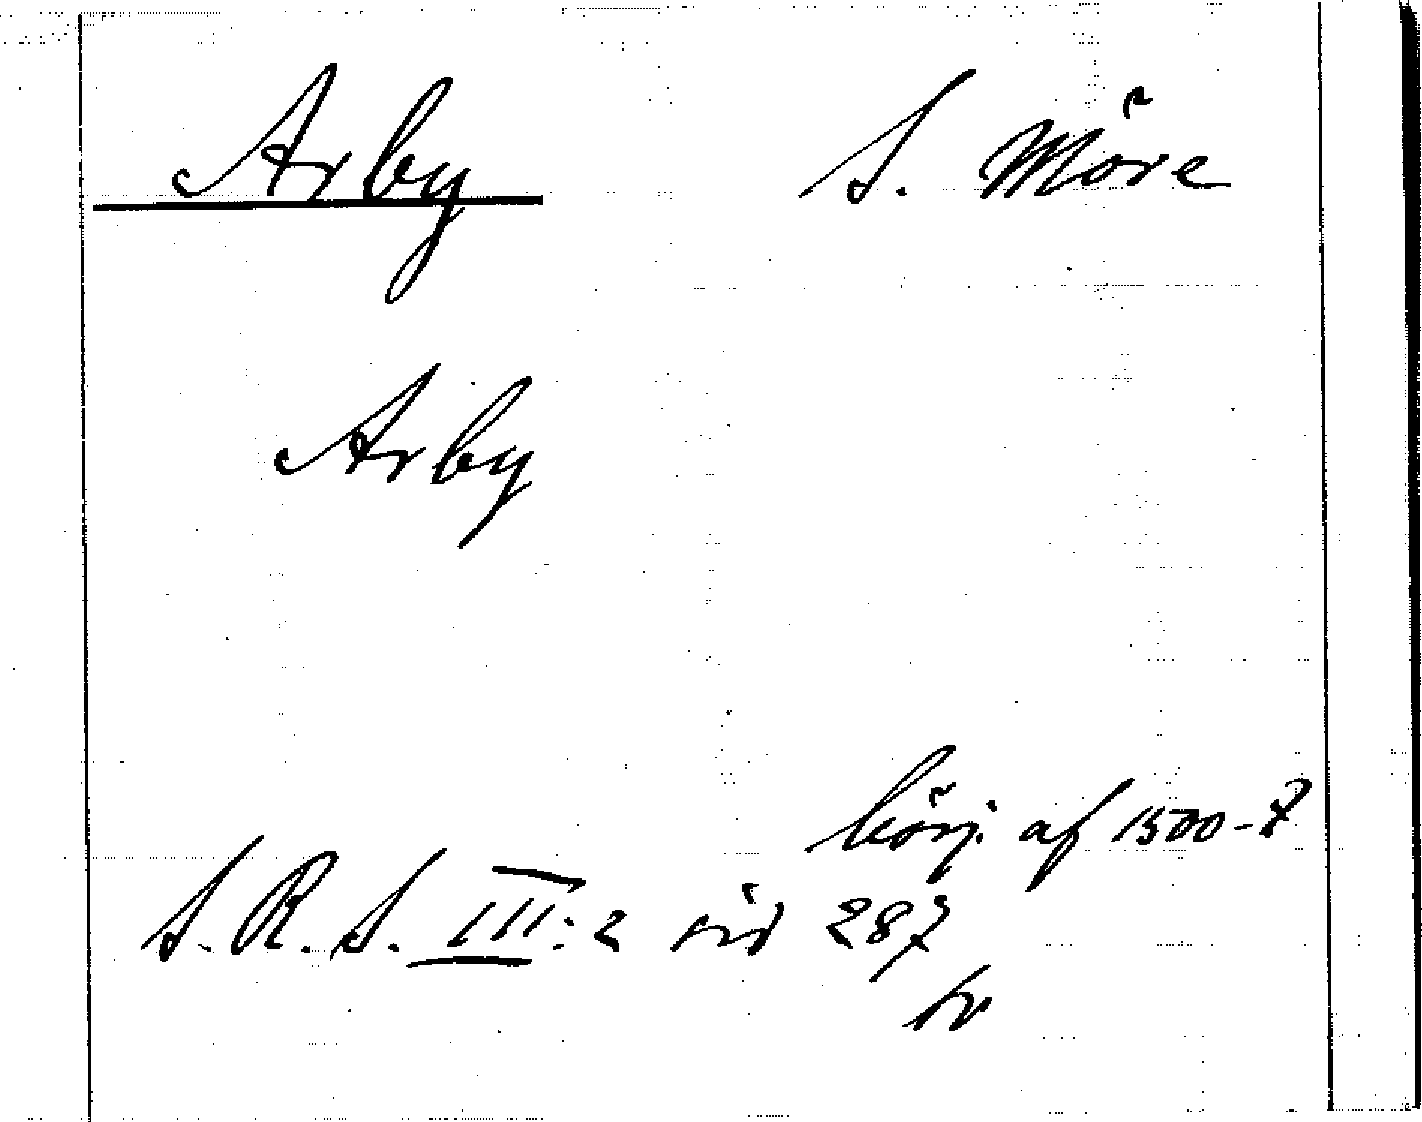 Arby S. Möre
Arby
börj. af 1500-t
S. R. S. III:2 sid 287